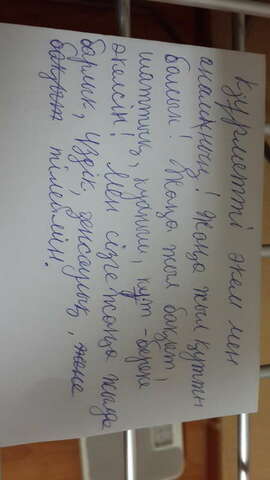 Құрметті әкем мен
анашқым! Жаңа жыл құтты
болсын! Жаңа жыл бақыт,
шаттық, қуаныш, құт - береке
әкелсін! Мен сізге жаңа жылда
барлық, үздік, денсаулық, және
бақыт тілеймін.